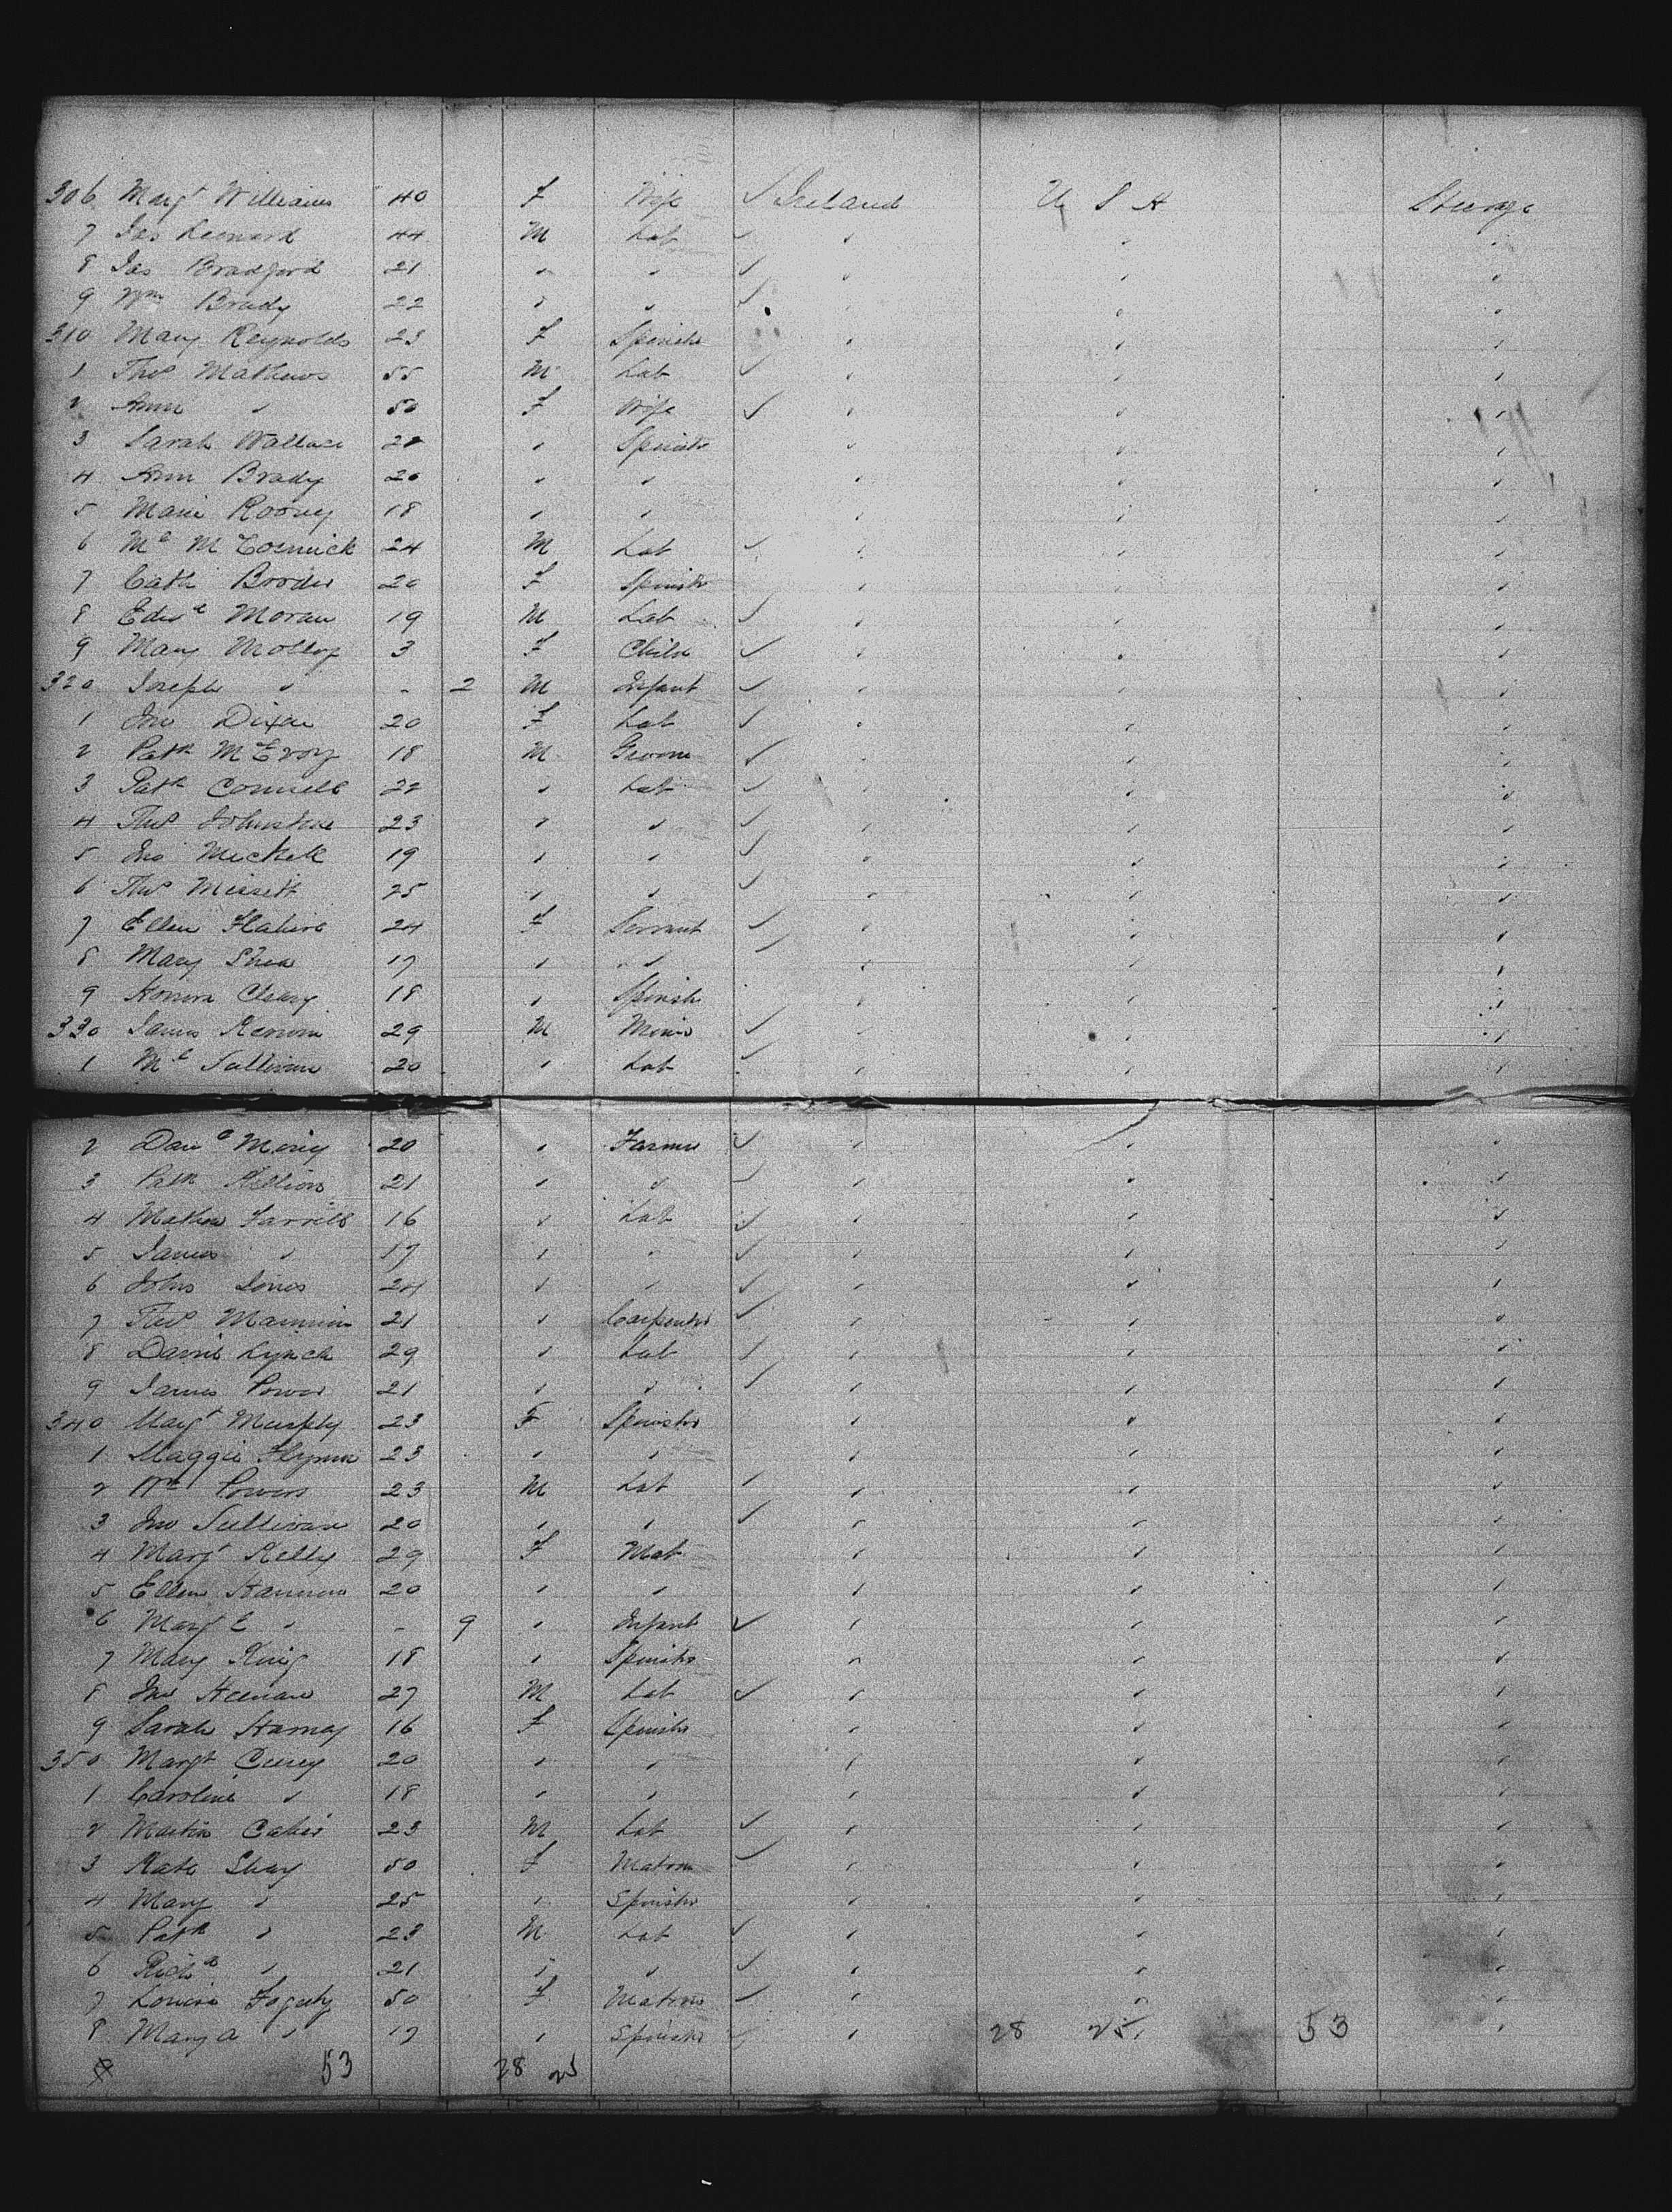 306 Margt Williams 40 F Wife ✓ Ireland U S A Steerage
7 Jas Leonard 44 M Lab ✓ " " "
8 Jas Bradford 21 " " ✓ " " "
9 Wm Brady 22 " " ✓ " " "
310 Mary Reynolds 23 F Spinstr " " "
1 Thos Mathews 55 M Lab ✓ " " "
2 Ann " 50 F Wife ✓ " " "
3 Sarah Wallace " Spinstr " " "
4 Ann Brady 20 " " " " "
5 Marie Rooney 18 " " " " "
6 Ml McCormick 24 M Lab ✓ " " "
7 Cath 20 F Spinstr " " "
8 Edwd Moran 19 M Lab ✓ " " "
9 Mary Molloy 3 F Child ✓ " " "
320 Joseph " - 2 M Infant ✓ " " "
1 Jno Dixon 20 F Lab ✓ " " "
2 Patk McEvoy 18 M Groom ✓ " " "
3 Patk Connell 22 " Lab ✓ " " "
4 Thos Johnston 23 " " ✓ " " "
5 Jno 19 " " ✓ " " "
6 Thos 25 " " ✓ " " "
7 Ellen 24 F Servant ✓ " " "
8 Mary Shea 17 " " ✓ " " "
9 Honora Cleary 18 " Spinstr " " "
330 James 29 M Miner ✓ " " "
1 Ml Sullivan 20 " Lab ✓ " " "
2 Danl 20 " Farmer ✓ " " "
3 Patk 21 " " ✓ " " "
4 Mathew Farrell 16 " Lab ✓ " " "
5 James " 17 " " ✓ " " "
6 John Jones 24 " " ✓ " " "
7 Thos 21 " Carpenter ✓ " " "
8 Lynch 29 " Lab ✓ " " "
9 James Power 21 " " ✓ " " "
340 Margt Murphy 23 F Spinster " " "
1 Maggie Flynn 23 " " " " "
2 Powers 23 M Lab ✓ " " "
3 Jno Sullivan 20 " " ✓ " " "
4 Margt Kelly 29 F Mat " " "
5 Ellen 20 " " " " "
6 Mary E " - 9 " Infant ✓ " " "
7 Mary King 18 " Spinstr " " "
8 Jno Heenan 27 M Lab ✓ " " "
9 Sarah 16 F Spinstr " " "
350 Margt 20 " " " " "
1 Caroline " 18 " " " " "
2 Martin 23 M Lab ✓ " " "
3 Kate 50 F Matron ✓ " " "
4 Mary " 25 " Spinstr " " "
5 Patk " 23 M Lab ✓ " " "
6 Richd " 21 " " ✓ " " "
7 Louisa Fogerty 50 F Matron ✓ " " "
8 Mary A " 17 " Spinstr ✓ " 28 25 53 "
53 28 25